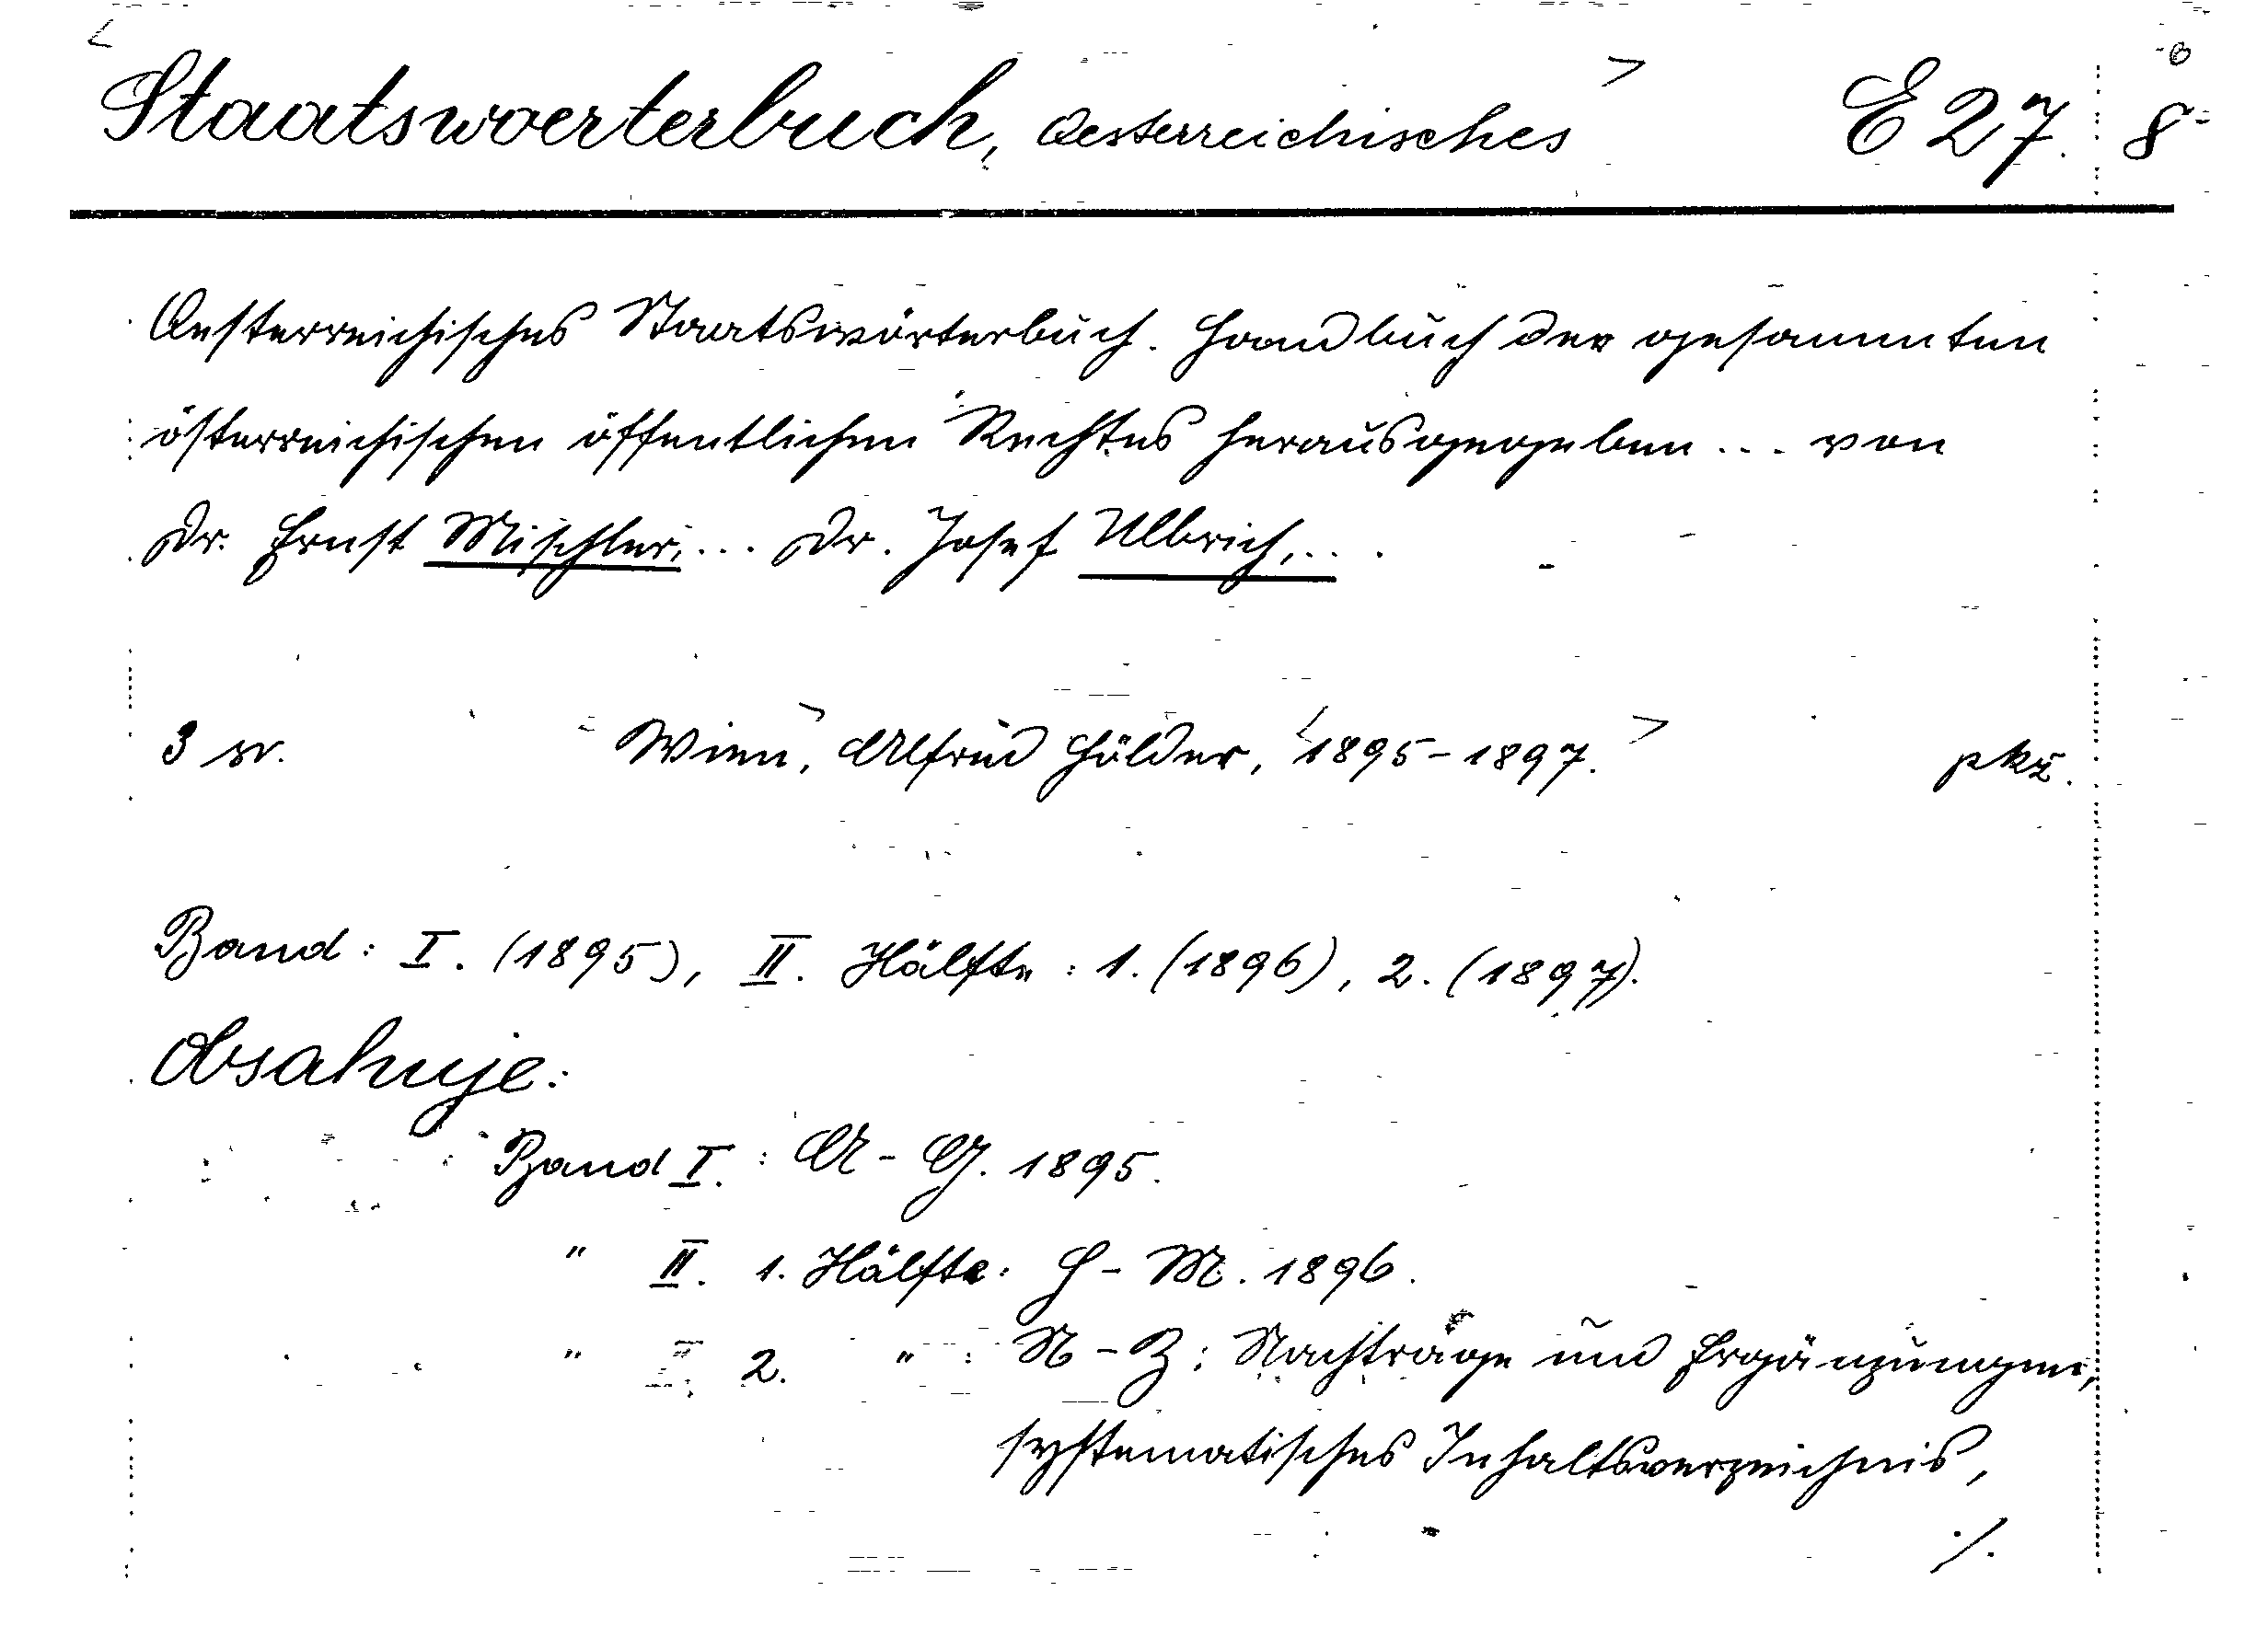 Staatswoerterbuch, Oesterreichisches E 27. 8
Oesterreichisches Staatswörterbuch. Handbuch des gesammten
österreichischen öffentlichen Rechtes herausgegeben ... von
Dr. Ernst Mischler, ... Dr. Josef Ulbrich, ...
3 sv. Wien, Alfred Hölder, 1895-1897. pkž.
Band: I. (1895), II. Hälfte: 1. (1896), 2. (1897).
Obsahuje:
Band I.: A - G. 1895.
" II. 1. Hälfte: H - M. 1896.
" " 2. " : N - Z; Nachträge und Ergänzungen,
systematisches Inhaltsverzeichnis,
./.